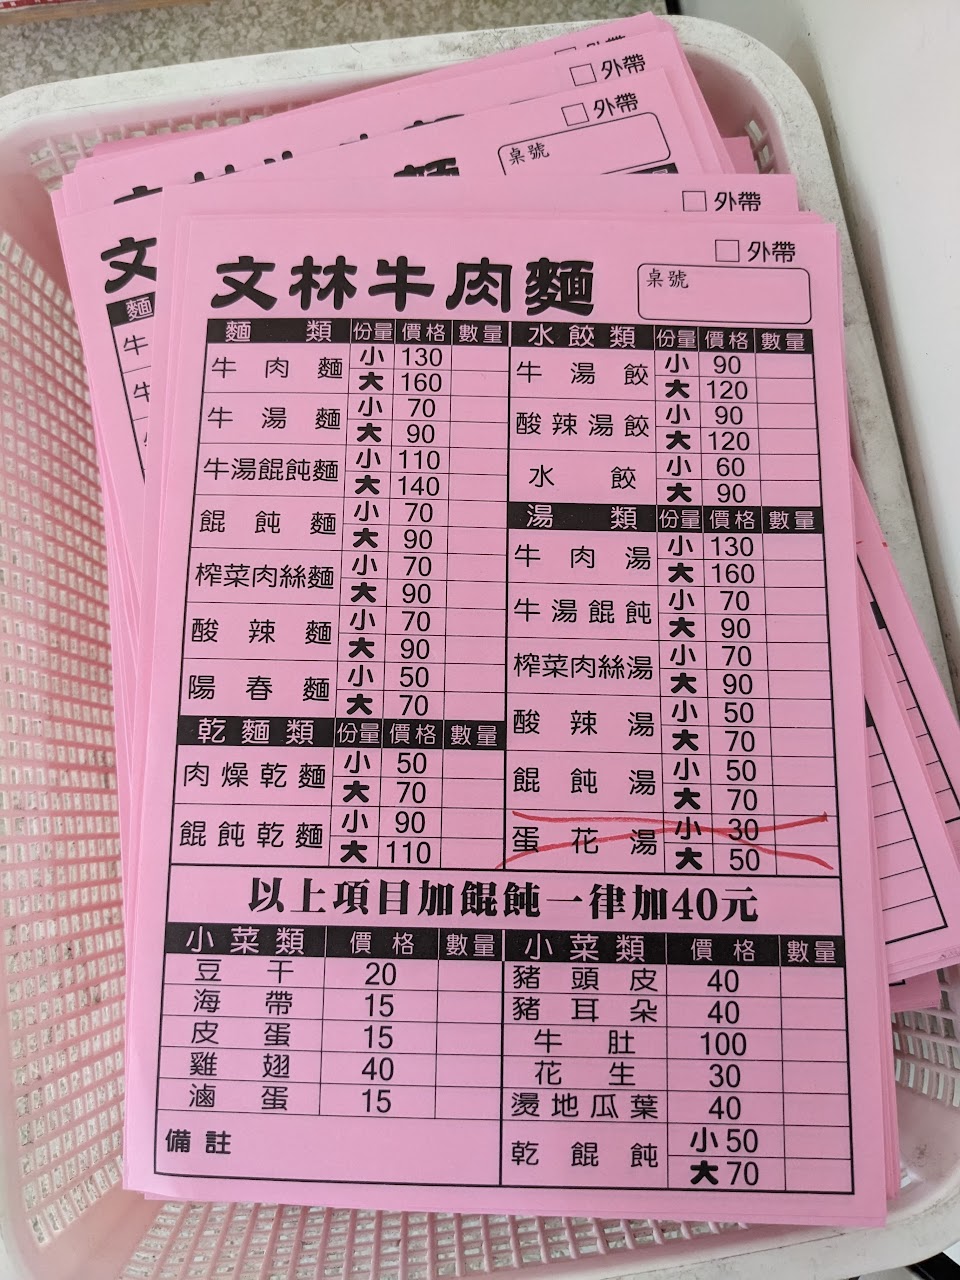 外帶
外帶
桌號
外帶
外帶
文林牛肉麵
桌號
麵類 份量 價格 數量
牛肉麵 小 130
大 160
牛湯麵 小 70
大 90
牛湯餛飩麵 小 110
大 140
餛飩麵 小 70
大 90
榨菜肉絲麵 小 70
大 90
酸辣麵 小 70
大 90
陽春麵 小 50
大 70
乾麵類 份量 價格 數量
肉燥乾麵 小 50
大 70
餛飩乾麵 小 90
大 110
水餃類 份量 價格 數量
牛湯餃 小 90
大 120
酸辣湯餃 小 90
大 120
水餃 小 60
大 90
湯類 份量 價格 數量
牛肉湯 小 130
大 160
牛湯餛飩 小 70
大 90
榨菜肉絲湯 小 70
大 90
酸辣湯 小 50
大 70
餛飩湯 小 50
大 70
蛋花湯 小 30
大 50
以上項目加餛飩一律加40元
小菜類 價格 數量
豆干 20
海帶 15
皮蛋 15
雞翅 40
滷蛋 15
備註
小菜類 價格 數量
豬頭皮 40
豬耳朵 40
牛肚 100
花生 30
燙地瓜葉 40
乾餛飩 小 50
大 70